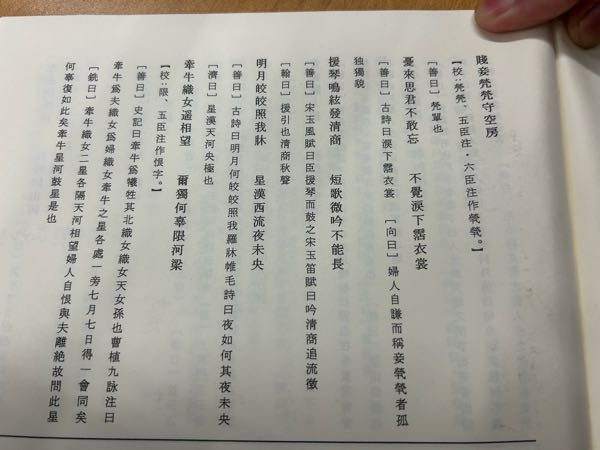 賤妾煢煢守空房
【校:煢煢、五臣注・六臣注作㷀㷀。】
［善曰］煢單也
憂來思君不敢忘　不覺淚下霑衣裳
［善曰］古詩曰淚下霑衣裳　［向曰］婦人自謙而稱妾㷀㷀者孤
独獨貌
援琴鳴絃發清商　短歌微吟不能長
［善曰］宋玉風賦曰臣援琴而鼓之宋玉笛賦曰吟清商追流徵
［翰曰］援引也清商秋聲
明月皎皎照我牀　星漢西流夜未央
［善曰］古詩曰明月何皎皎照我羅牀帷毛詩曰夜如何其夜未央
［濟曰］星漢天河央極也
牽牛織女遥相望　爾獨何辜限河梁
【校:限、五臣注作恨字。】
［善曰］史記曰牽牛爲犧牲其北織女織女天女孫也曹植九詠注曰
牽牛爲夫織女爲婦織女牽牛之星各處一旁七月七日得一會同矣
［銑曰］牽牛織女二星各隔天河相望婦人自恨與夫離絶故問此星
何辜復如此矣牽牛星河鼓星是也